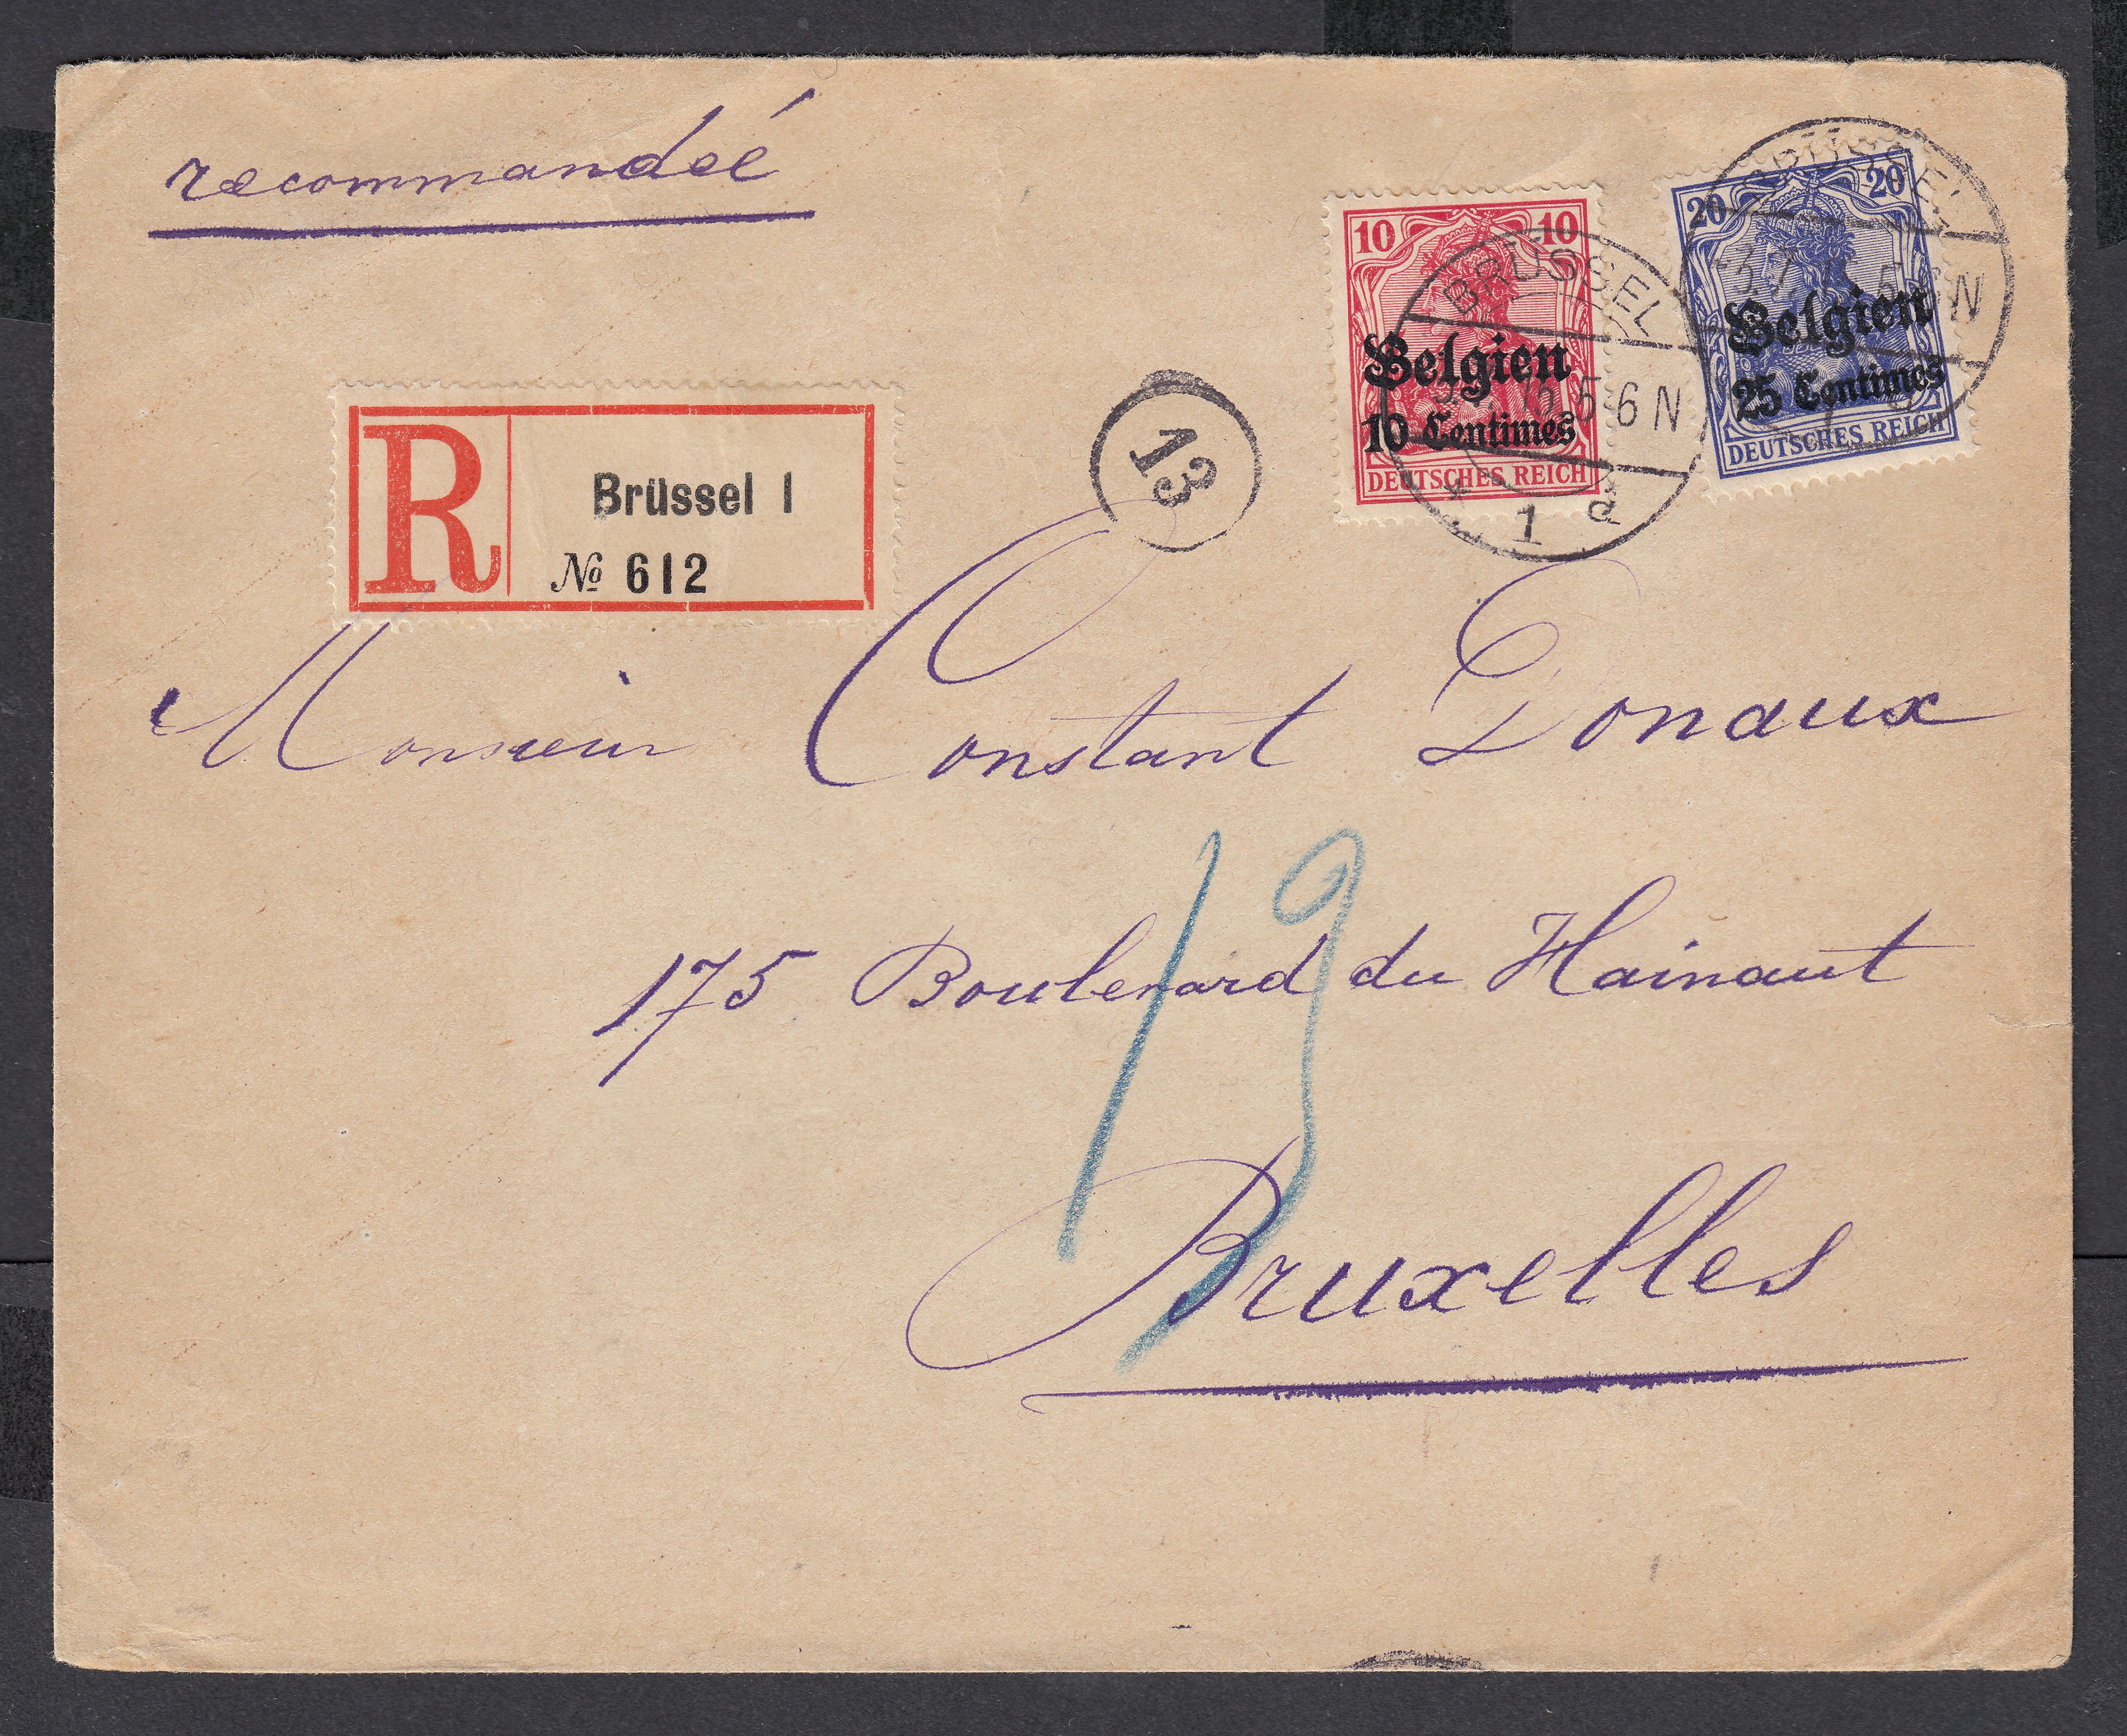 recommandée
R Brüssel 1
No 612
13
10 10
Belgien
10 Centimes
DEUTSCHES REICH
BRÜSSEL
5-6N
1 d
20 20
Belgien
25 Centimes
DEUTSCHES REICH
BRÜSSEL
Monsieur Constant Donaux
175 Boulevard du Hainaut
19
Bruxelles